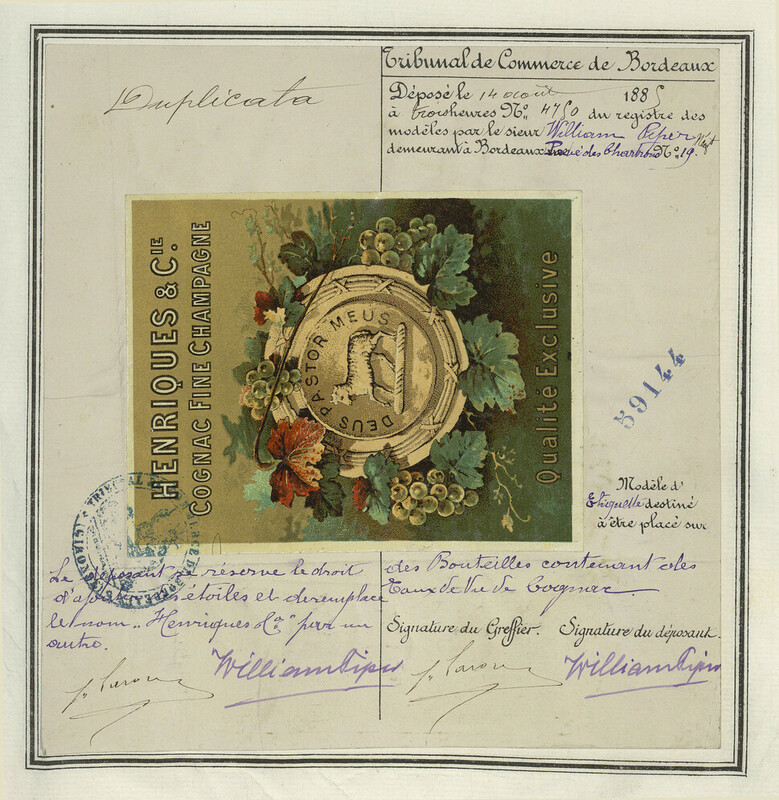 Duplicata
Tribunal de Commerce de Bordeaux
Déposé le 14 août 1885
à trois heures N° 4750 du registre des
modèles par le sieur William Piper Négt
demeurant à Bordeaux Pavé des Chartrons N° 19.
HENRIQUES & CIE.
COGNAC FINE CHAMPAGNE
DEUS PASTOR MEUS
Qualité Exclusive
59144
Modèle d'
Etiquette destiné
à être placé sur
des Bouteilles contenant des
Eaux de Vie de Cognac.
Le déposant se réserve le droit
étoiles et de remplacer
le nom „Henriques & Co" par un
autre.
Signature du Greffier. Signature du déposant.
William Piper
William Piper